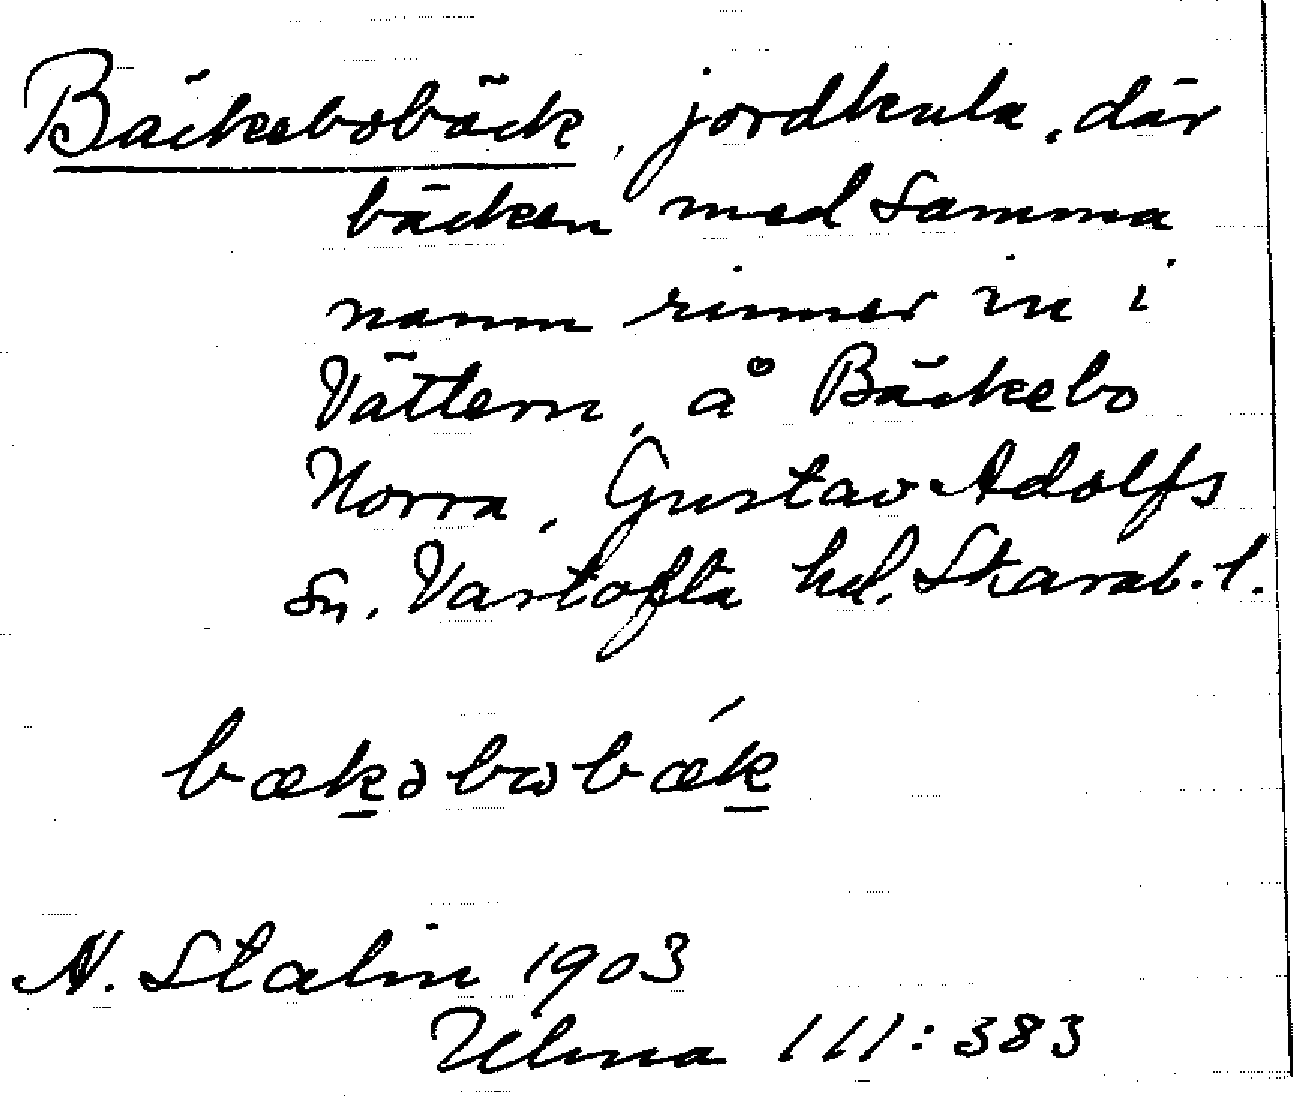 Bäckebobäck, jordkula, där
bäcken med samma
namn rinner in i
Vättern, å Bäckebo
Norra, Gustav Adolfs
sn. Vartofta hd. Skarab. l.
bækəbωbǽk
N. Stalin 1903
Ulma 111:383